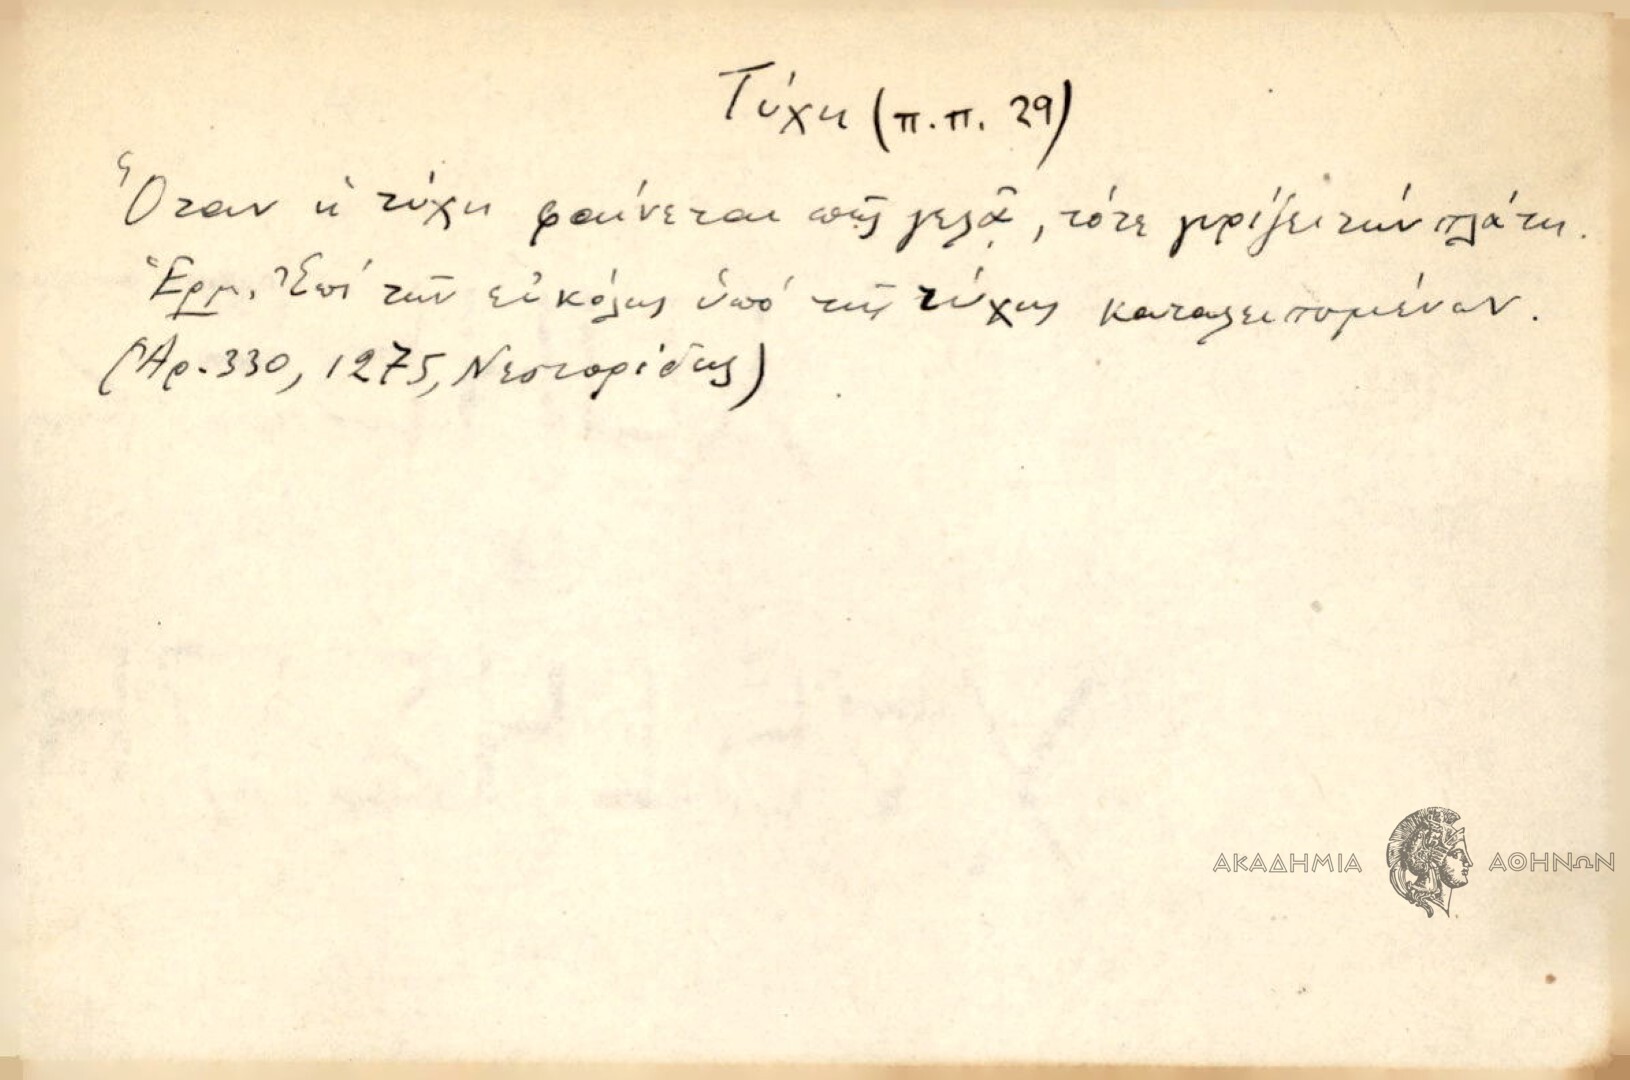 Τύχη (π.π. 29)
Ὅταν ἡ τύχη φαίνεται πῶς γελᾷ, τότε γυρίζει τὴν πλάτη.
Ἑρμ. Ἐπὶ τῶν εὐκόλως ὑπὸ τῆς τύχης καταλειπομένων.
(Ἀρ. 330, 1275, Νεστορίδης)
ΑΚΑΔΗΜΙΑ ΑΘΗΝΩΝ